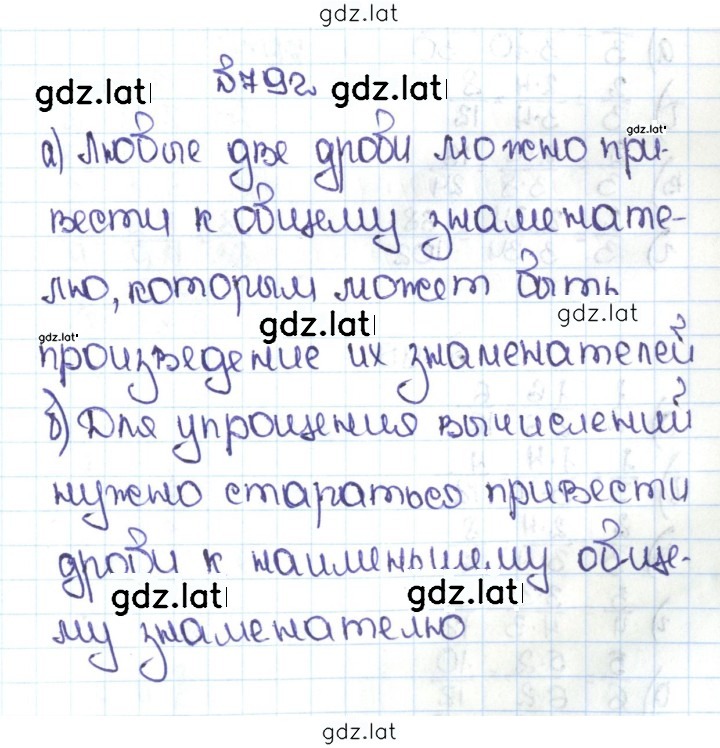 gdz.lat
№792
gdz.lat gdz.lat
а) Любые две дроби можно при-
gdz.lat
вести к общему знаменате-
лю, которым может быть
gdz.lat gdz.lat
gdz.lat
произведение их знаменателей
б) Для упрощения вычислений
нужно стараться привести
дроби к наименьшему обще-
gdz.lat gdz.lat
му знаменателю
gdz.lat